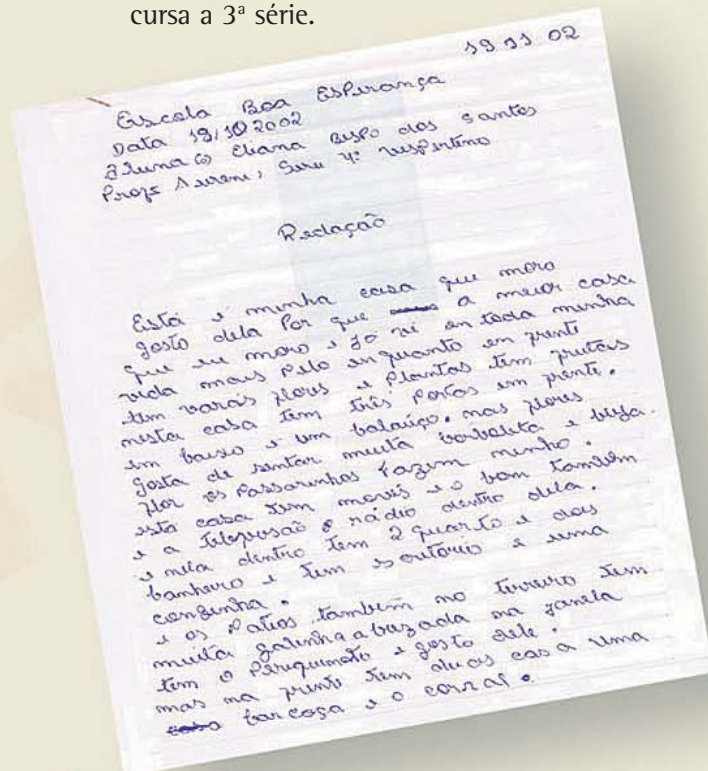 cursa a 3ª série.
19 11 02
Escola Boa Esperança
Data 19/10 2002
Aluna Eliana Bispo dos Santos
Profe Aurení, Seru 4ª vespertino
Redação
Está é minha casa que moro
gosto dela Por que a meior casa
que eu moro e já vi en toda minha
vida mais Pelo enquanto en frente
tem varais flores e Plantas tem frutais
nesta casa tem três Portas em frente.
em baixo e um balanço. nas flores
gosta de sentar muita borboleta e beija.
flor os Passarinhos fazem ninho.
está casa tem moveis e o bom também
e a televosão e rádio dentro dela.
e nela dentro tem 2 quarto e dois
banheiro e tem escritório e uma
conzinha.
e os Patios também no tereiro tem
muita galinha abuzada na janela
tem o Periquinoto e gosto dele.
mas na frente tem duas casa uma
barcoça e o corral.